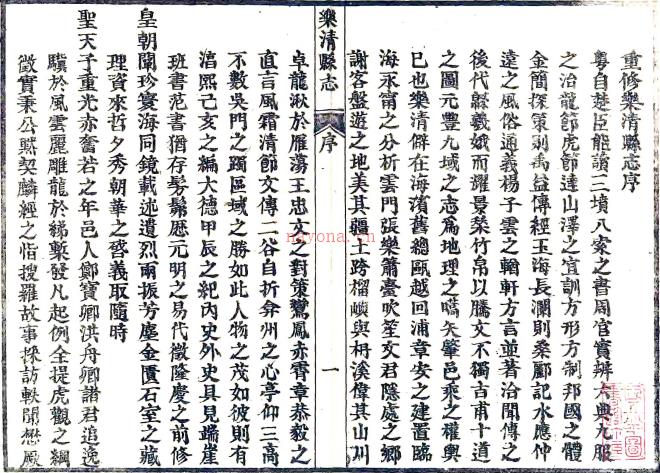 重修樂清縣志序
粵自楚臣能讀三墳八索之書周官實辨六典九服
之治龍節虎節達山澤之宜訓方形方制邦國之體
金簡探策刱禹益傳經玉海長瀾則桑酈記水應仲
遠之風俗通義楊子雲之輶軒方言並著洽聞傳之
後代縣羲娥而耀景槃竹帛以騰文不獨吉甫十道
之圖元豐九域之志為地理之嚆矢肇邑乘之權輿
已也樂清僻在海濱舊總甌越回浦章安之建置臨
海永甯之分析雲門張樂簫臺吹笙文君隱處之鄉
謝客盤遊之地美其疆土跨榴嶼與枬溪偉其山川
樂清縣志
序
一
卓龍湫於雁蕩王忠文之對策鸞鳳赤霄章恭毅之
直言風霜清節文傳二谷自折弇州之心亭仰三高
不數吳門之躅區域之勝如此人物之茂如彼則有
淳熙己亥之編大德甲辰之紀內史外史具見端崖
班書范書猶存髣髴歷元明之易代徵隆慶之前修
皇朝闡珍寰海同鏡載述遺烈兩振芳塵金匱石室之藏
理資來哲夕秀朝華之啓義取隨時
聖天子重光赤奮若之年邑人鄭寶卿洪舟卿諸君追逸
驥於風雲麗雕龍於綈槧發凡起例全提虎觀之綱
徵實秉公縣契麟經之恉搜羅故事採訪軼聞懋厥
nayona.cn